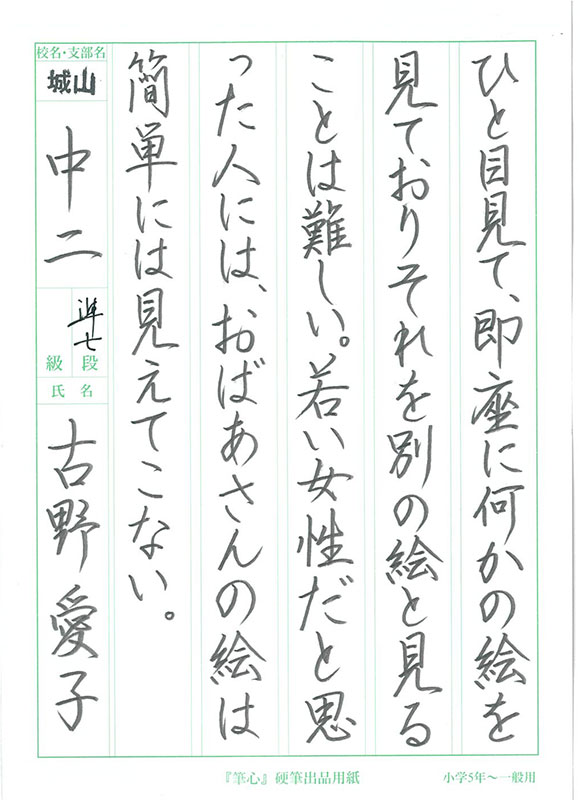 ひと目見て、即座に何かの絵を
見ておりそれを別の絵と見る
ことは難しい。若い女性だと思
った人には、おばあさんの絵は
簡単には見えてこない。
校名・支部名
城山
中二
準七
級 段
氏名
古野愛子
『筆心』硬筆出品用紙
小学5年〜一般用